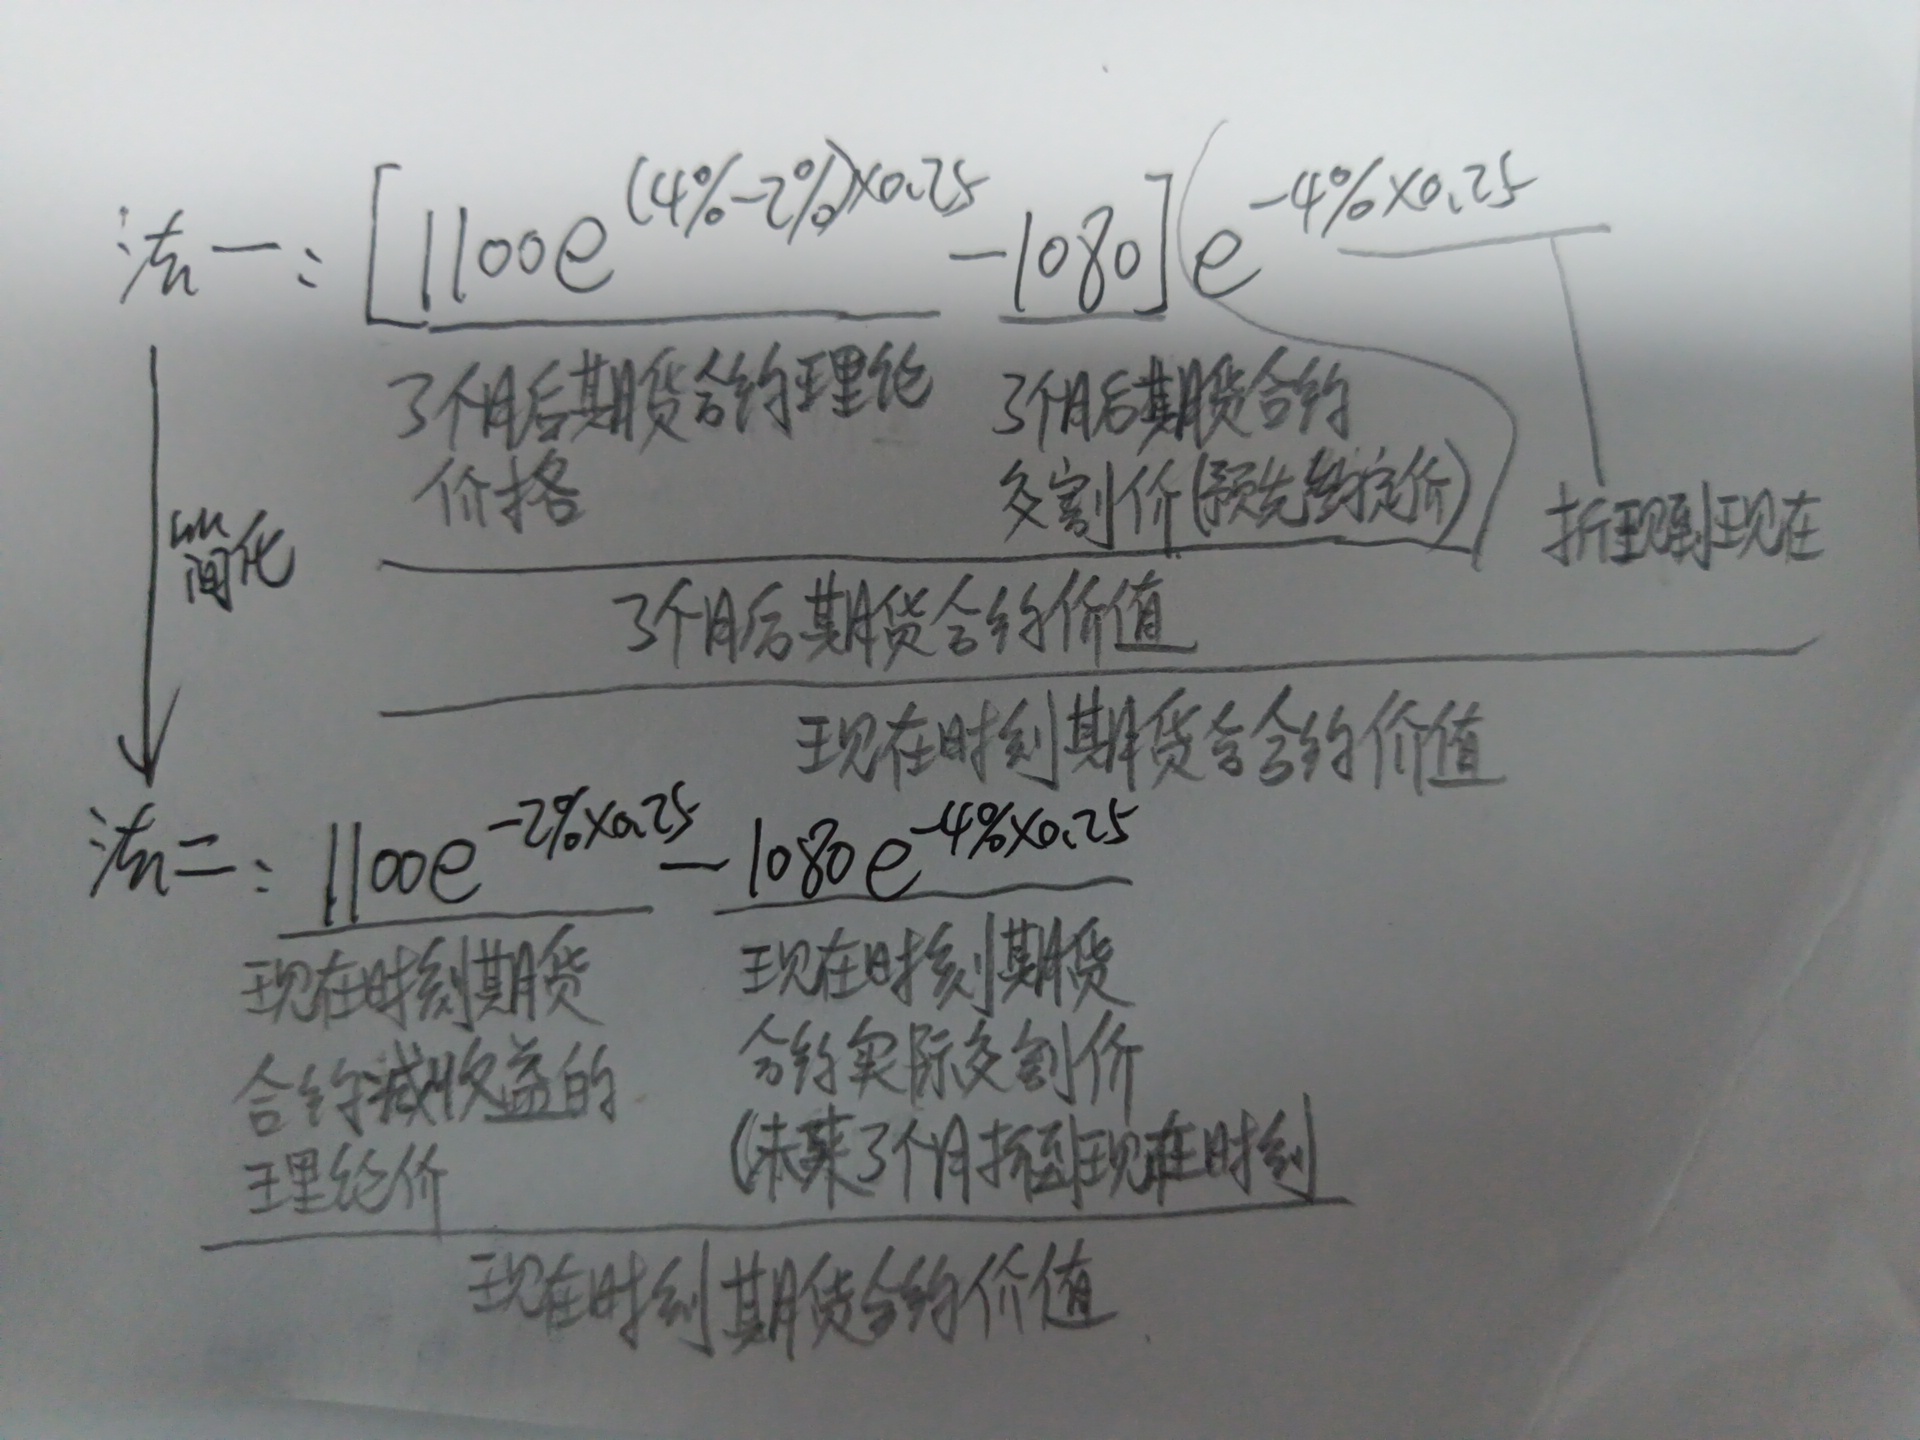 法一：[1100e^{(4%-2%)×0.25} -1080]e^{-4%×0.25}
3个月后期货合约理论
价格
3个月后期货合约
交割价(预先约定价)
折现到现在
简化
3个月后期货合约价值
现在时刻期货合约价值
法二：1100e^{-2%×0.25} - 1080e^{-4%×0.25}
现在时刻期货
合约减收益的
理论价
现在时刻期货
合约实际交割价
(未来3个月折到现在时刻
现在时刻期货合约价值